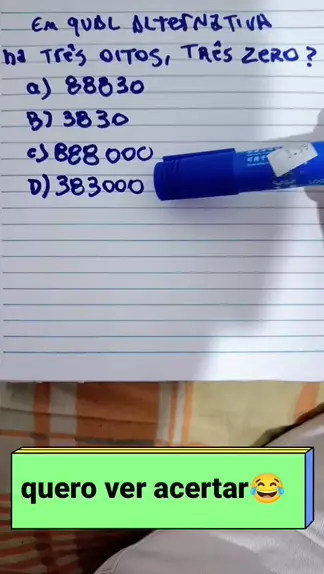 EM QUAL ALTERNATIVA
há TRÊS OITOS, TRÊS ZERO?
a) 88830
B) 3830
c) 888000
D) 383000
quero ver acertar😂